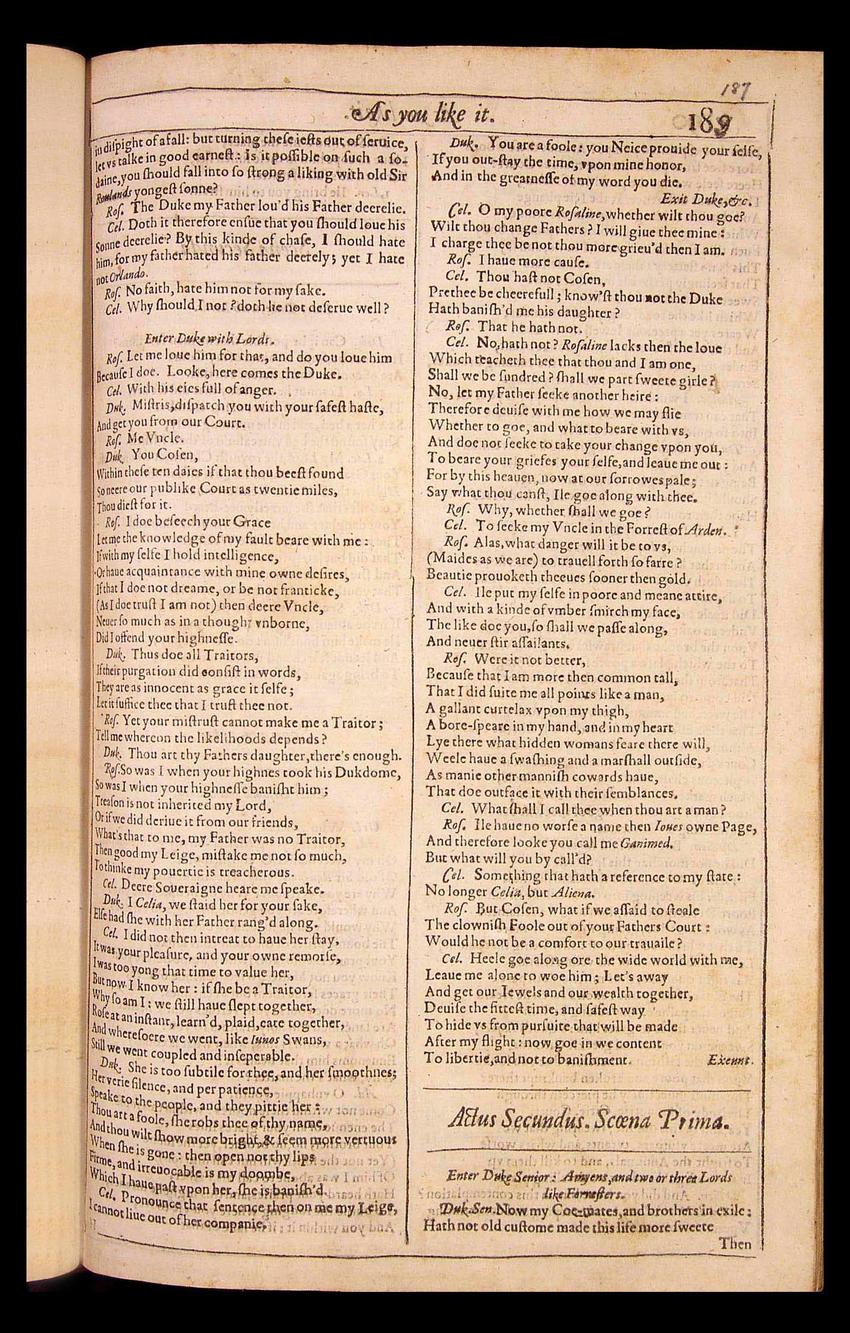 187
As you like it. 189
in dispight of a fall: but turning these iests out of seruice,
let vs talke in good earnest: Is it possible on such a so-
daine, you should fall into so strong a liking with old Sir
Rowlands yongest sonne?
Ros. The Duke my Father lou'd his Father deerelie.
Cel. Doth it therefore ensue that you should loue his
Sonne deerelie? By this kinde of chase, I should hate
him, for my father hated his father deerely; yet I hate
not Orlando.
Ros. No faith, hate him not for my sake.
Cel. Why should I not? doth he not deserue well?
Enter Duke with Lords.
Ros. Let me loue him for that, and do you loue him
Because I doe. Looke, here comes the Duke.
Cel. With his eies full of anger.
Duk. Mistris, dispatch you with your safest haste,
And get you from our Court.
Ros. Me Vncle.
Duk. You Cosen,
Within these ten daies if that thou beest found
So neere our publike Court as twentie miles,
Thou diest for it.
Ros. I doe beseech your Grace
Let me the knowledge of my fault beare with me:
If with my selfe I hold intelligence,
Or haue acquaintance with mine owne desires,
If that I doe not dreame, or be not franticke,
(As I doe trust I am not) then deere Vncle,
Neuer so much as in a thought vnborne,
Did I offend your highnesse.
Duk. Thus doe all Traitors,
If their purgation did consist in words,
They are as innocent as grace it selfe;
Let it suffice thee that I trust thee not.
Ros. Yet your mistrust cannot make me a Traitor;
Tell me whereon the likelihoods depends?
Duk. Thou art thy Fathers daughter, there's enough.
Ros. So was I when your highnes took his Dukdome,
So was I when your highnesse banisht him;
Treason is not inherited my Lord,
Or if we did deriue it from our friends,
What's that to me, my Father was no Traitor,
Then good my Leige, mistake me not so much,
To thinke my pouertie is treacherous.
Cel. Deere Soueraigne heare me speake.
Duk. I Celia, we staid her for your sake,
Else had she with her Father rang'd along.
Cel. I did not then intreat to haue her stay,
It was your pleasure, and your owne remorse,
I was too yong that time to value her,
But now I know her: if she be a Traitor,
Why so am I: we still haue slept together,
Rose at an instant, learn'd, plaid, eate together,
And wheresoere we went, like Iunos Swans,
Still we went coupled and inseperable.
Duk. She is too subtile for thee, and her smoothnes;
Her verie silence, and per patience,
Speake to the people, and they pittie her:
Thou art a foole, she robs thee of thy name,
And thou wilt show more bright, & seem more vertuous
When she is gone: then open not thy lips
Firme, and irreuocable is my doombe,
Which I haue past vpon her, she is banish'd.
Cel. Pronounce that sentence then on me my Leige,
I cannot liue out of her companie.
Duk. You are a foole: you Neice prouide your selfe,
If you out-stay the time, vpon mine honor,
And in the greatnesse of my word you die.
Exit Duke, &c.
Cel. O my poore Rosaline, whether wilt thou goe?
Wilt thou change Fathers? I will giue thee mine:
I charge thee be not thou more grieu'd then I am.
Ros. I haue more cause.
Cel. Thou hast not Cosen,
Prethee be cheerefull; know'st thou not the Duke
Hath banish'd me his daughter?
Ros. That he hath not.
Cel. No, hath not? Rosaline lacks then the loue
Which teacheth thee that thou and I am one,
Shall we be sundred? shall we part sweete girle?
No, let my Father seeke another heire:
Therefore deuise with me how we may flie
Whether to goe, and what to beare with vs,
And doe not seeke to take your change vpon you,
To beare your griefes your selfe, and leaue me out:
For by this heauen, now at our sorrowes pale;
Say what thou canst, Ile goe along with thee.
Ros. Why, whether shall we goe?
Cel. To seeke my Vncle in the Forrest of Arden.
Ros. Alas, what danger will it be to vs,
(Maides as we are) to trauell forth so farre?
Beautie prouoketh theeues sooner then gold.
Cel. Ile put my selfe in poore and meane attire,
And with a kinde of vmber smirch my face,
The like doe you, so shall we passe along,
And neuer stir assailants.
Ros. Were it not better,
Because that I am more then common tall,
That I did suite me all points like a man,
A gallant curtelax vpon my thigh,
A bore-speare in my hand, and in my heart
Lye there what hidden womans feare there will,
Weele haue a swashing and a marshall outside,
As manie other mannish cowards haue,
That doe outface it with their semblances.
Cel. What shall I call thee when thou art a man?
Ros. Ile haue no worse a name then Ioues owne Page,
And therefore looke you call me Ganimed.
But what will you by call'd?
Cel. Something that hath a reference to my state:
No longer Celia, but Aliena.
Ros. But Cosen, what if we assaid to steale
The clownish Foole out of your Fathers Court:
Would he not be a comfort to our trauaile?
Cel. Heele goe along ore the wide world with me,
Leaue me alone to woe him; Let's away
And get our Iewels and our wealth together,
Deuise the fittest time, and safest way
To hide vs from pursuite that will be made
After my flight: now goe in we content
To libertie, and not to banishment. Exeunt.
Actus Secundus. Scœna Prima.
Enter Duke Senior: Amyens, and two or three Lords
like Forresters.
Duk. Sen. Now my Coe-mates, and brothers in exile:
Hath not old custome made this life more sweete
Then